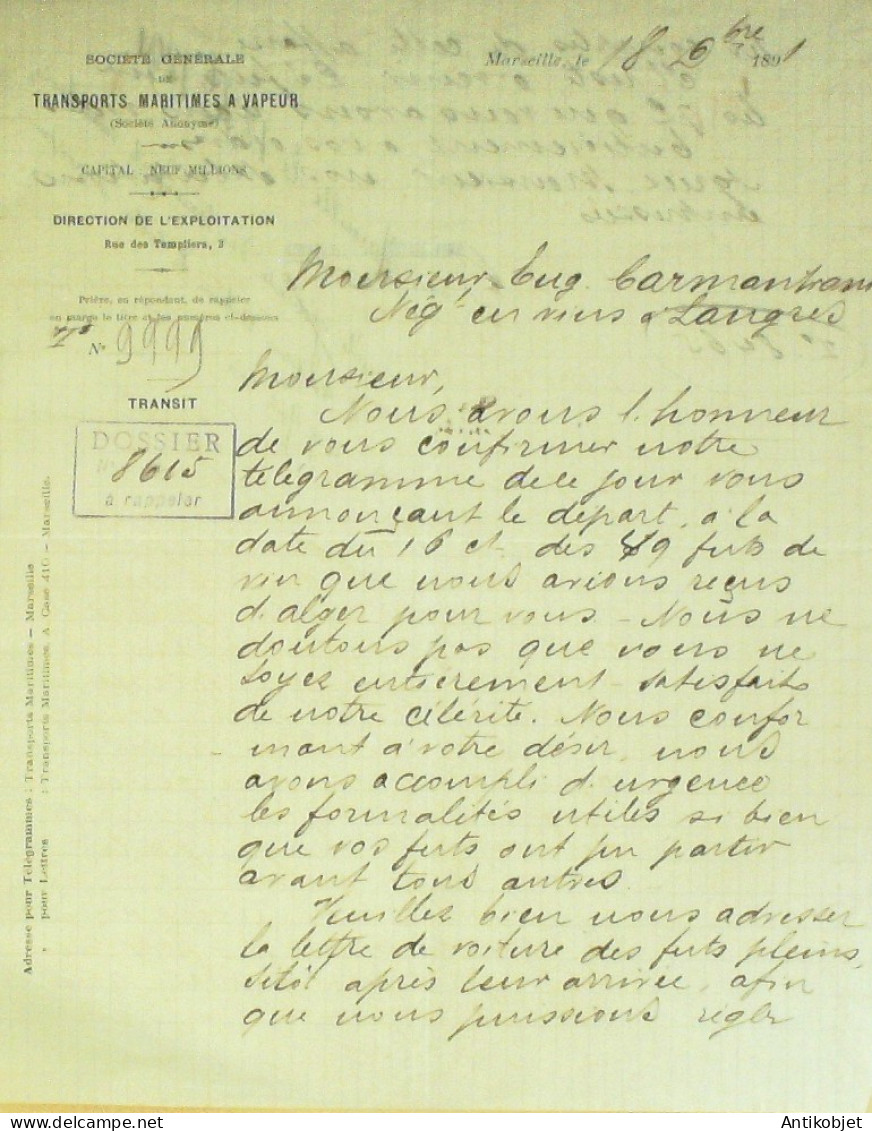 SOCIÉTÉ GÉNÉRALE
DE
TRANSPORTS MARITIMES A VAPEUR
(Société Anonyme)
CAPITAL : NEUF MILLIONS
DIRECTION DE L'EXPLOITATION
Rue des Templiers, 2
Prière, en répondant, de rappeler
en marge le titre et les numéros ci-dessous
N° 9999
TRANSIT
DOSSIER
8615
à rappeler
Adresse pour Télégrammes : Transports Maritimes – Marseille
" pour Lettres : Transports Maritimes. A Case 410 – Marseille.
Marseille, le 18 9bre 1891
Monsieur Eug. Carmantrand
Négt en vins à Langres
Monsieur,
Nous avons l'honneur
de vous confirmer notre
télégramme de ce jour vous
annonçant le départ, à la
date du 16 ct des 49 futs de
vin que nous avions reçus
d'alger pour vous – Nous ne
doutons pas que vous ne
soyez entièrement satisfaits
de notre célérité. Nous confor
mant à votre désir, nous
avons accompli d'urgence
les formalités utiles si bien
que vos futs ont pu partir
avant tous autres.
Veuillez bien nous adresser
la lettre de voiture des futs pleins,
sitôt après leur arrivée, afin
que nous puissions régler
© Antikobjet